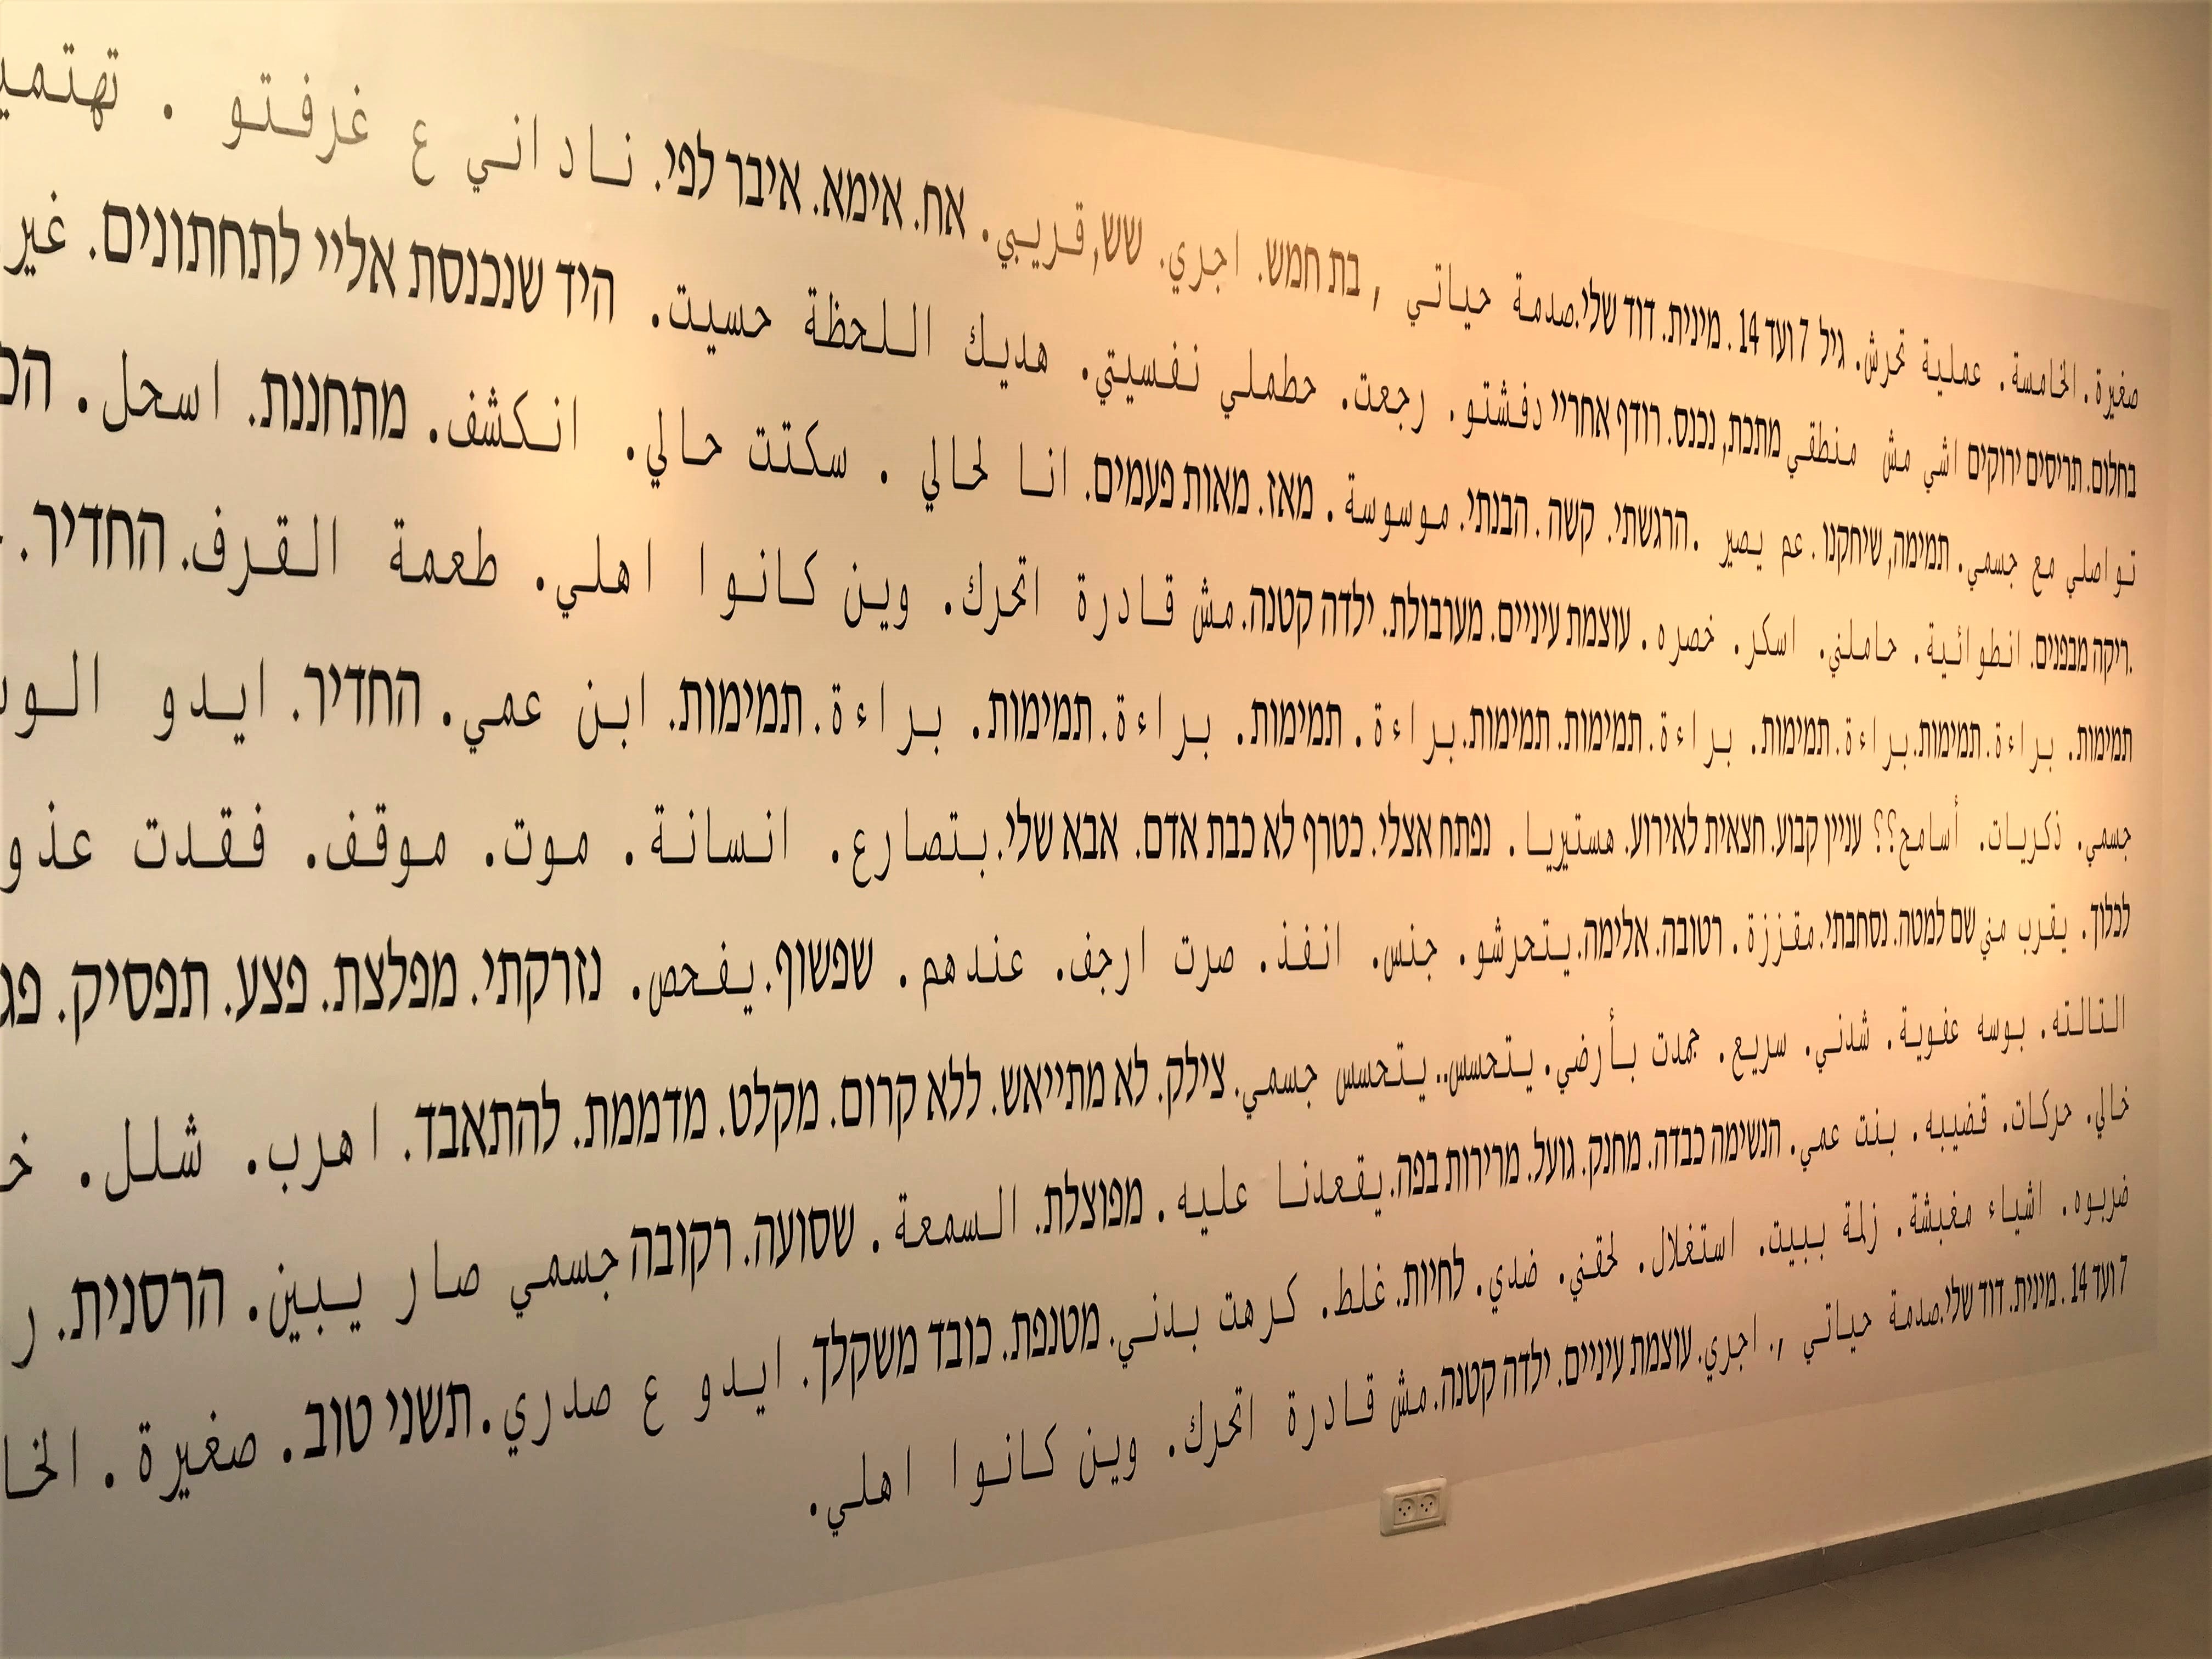 صغيرة. الخامسة. عملية تحرش. גיל 7 ועד 14. מינית. דוד שלי. صدمة حياتي, בת חמש. اجري. שש, قريبي. אח. אימא. איבר לפי. ناداني ع غرفتو. تهتمي
בחלום. תריסים ירוקים اشي مش منطقي מתכת, נכנס. רודף אחריי دفشتو. رجعت. حطملي نفسيتي. هديك اللحظة حسيت. היד שנכנסת אליי לתחתונים. غير
تواصلي مع جسمي. תמימה, שיחקנו. عم يصير. הרגשתי. קשה. הבנתי. موسوسة. מאז. מאות פעמים. انا لحالي. سكتت حالي. انكشف. מתחננת. اسحل.
ריקה מבפנים. انطوائية. حاملني. اسكر. خصره. עוצמת עיניים. מערבולת. ילדה קטנה. مش قادرة اتحرك. وين كانوا اهلي. طعمة القرف. החדיר.
תמימות. براءة. תמימות. براءة. תמימות. براءة. תמימות. براءة. תמימות. תמימות. براءة. תמימות. براءة. תמימות. براءة. תמימות. ابن عمي. החדיר. ايدو
جسمي. ذكريات. أسامح؟؟ עניין קבוע. חצאית לאירוע. هستيريا. נפתח אצלי. כטרף לא כבת אדם. אבא שלי. بتصارع. انسانة. موت. موقف. فقدت عذو
לכלוך. يقرب مني שם למטה. נסחבתי. مقززة. רטובה. אלימה. يتحرشو. جنس. انفذ. صرت ارجف. عندهم. שפשוף. يفحص. נזרקתי. מפלצת. פצע. תפסיק. פג
التالته. بوسه عفوية. شدني. سريع. جمدت بأرضي. يتحسس.. يتحسس جسمي. צילק. לא מתייאש. ללא קרום. מקלט. מדממת. להתאבד. اهرب. شلل. خ
خالي. حركات. قضيبه. بنت عمي. הנשימה כבדה. מחנק. גועל. מרירות בפה. يقعدنا عليه. מפוצלת. السمعة. שסועה. רקובה جسمي صار يبين. הרסנית. ر
ضربوه. اشياء مغبشة. زلمة ببيت. استغلال. لحقني. ضدي. לחיות. غلط. كرهت بدني. מטונפת. כובד משקלך. ايدو ع صدري. תשני טוב. صغيرة. الخا
7 ועד 14. מינית. דוד שלי. صدمة حياتي,. اجري. עוצמת עיניים. ילדה קטנה. مش قادرة اتحرك. وين كانوا اهلي.